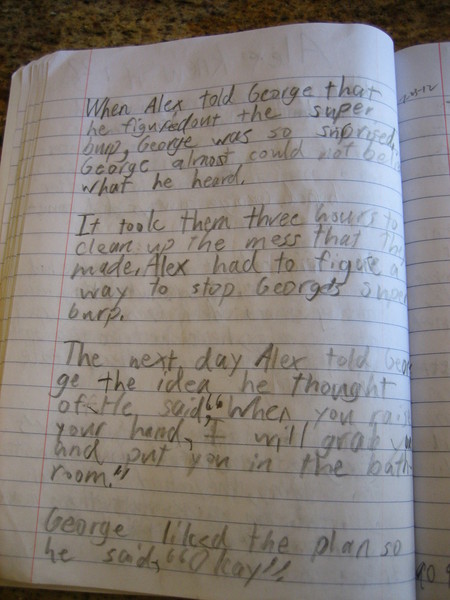 When Alex told George that
he figured out the super
burp, George was so suprised,
George almost could not
what he heard.
It took them three hours to
clean up the mess that
made, Alex had to figure a
way to stop Georges super
burp.
The next day Alex told Geor
ge the idea he thought
of. He said, "When you
your hand, I will grab
and put you in the bath-
room."
George liked the plan so
he said, "Okay"